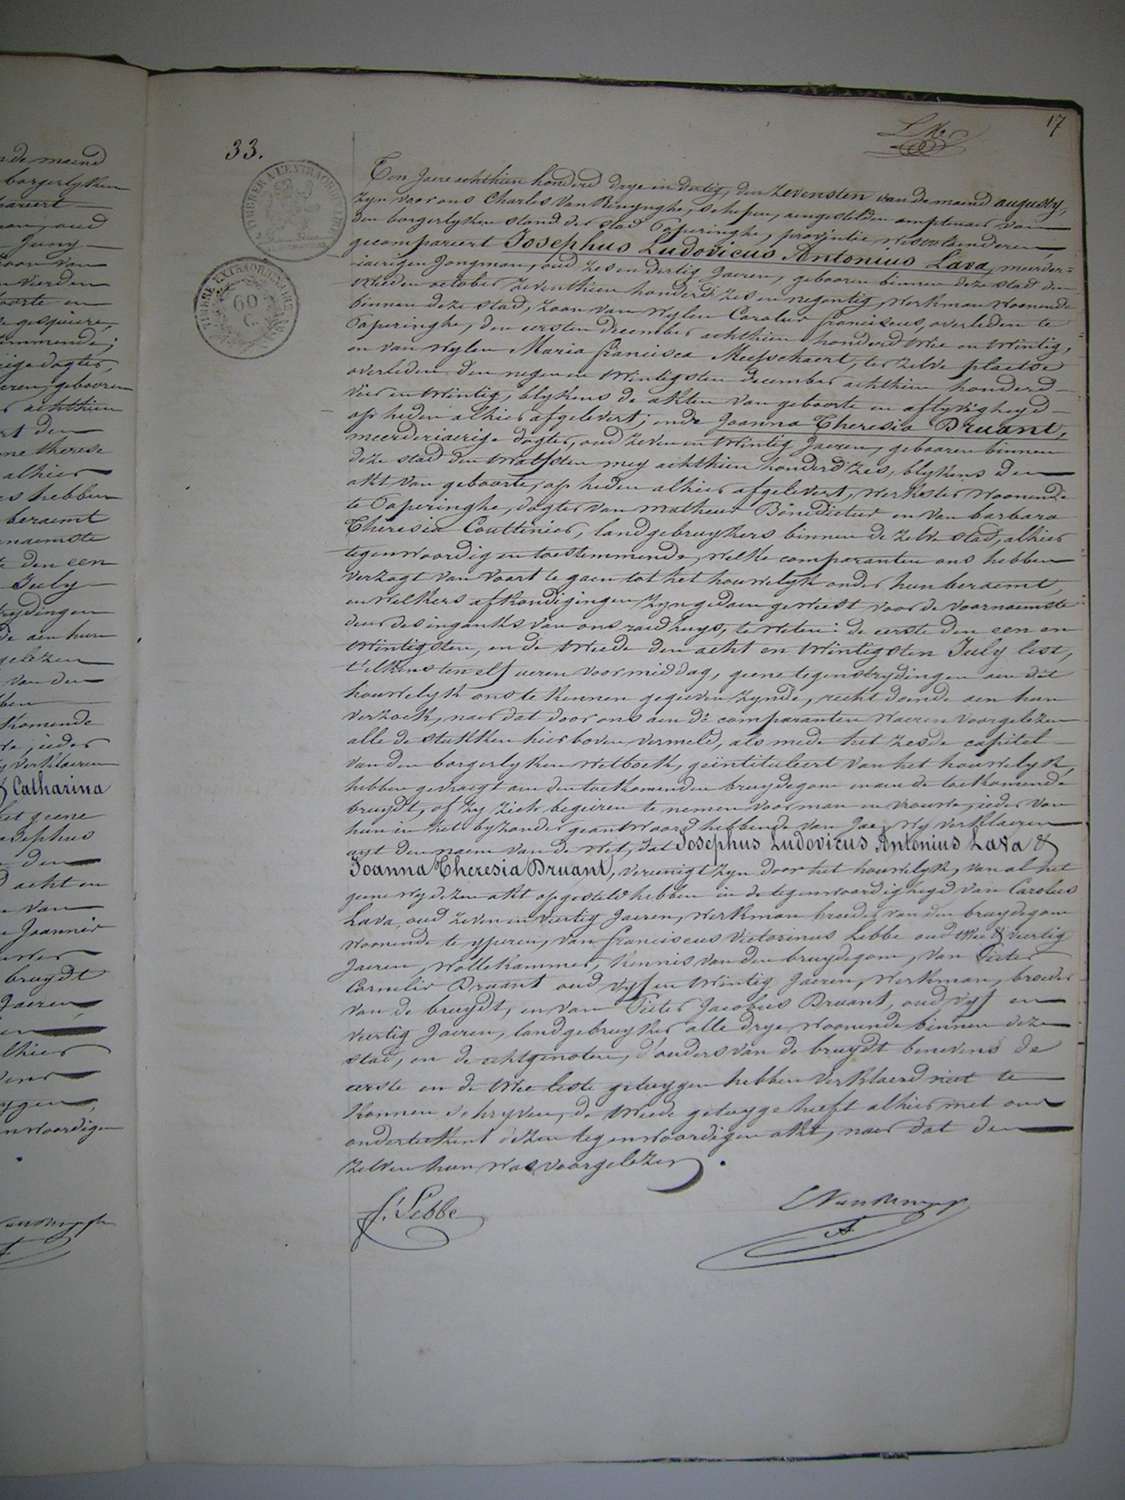 17
33.
TIMBRER A L'EXTRAORDINAIRE
TIMBRE EXTRAORDINAIRE
60
C.
Ten Jaere achthien honderd drye en dertig, den zevensten van de maend augusty,
zyn voor ons Charles Van Renynghe, schepen, aengestelden amptenaer van
den borgerlyken stand der stad Poperinghe, provintie Westvlaenderen,
gecompareert Josephus Ludovicus Antonius Lava, meerder-
jaerigen Jongman, oud zes en dertig Jaeren, gebooren binnen deze stad den
tweeden october zeventhien honderd zes en negentig, Werkman woonende
binnen deze stad, zoon van Wylen Carolus franciscus, overleden te
Poperinghe, den eersten December achthien honderd twee en twintig,
en van Wylen Maria francisca Meesschaert, ter zelve plaetse
overleden den negen en twintigsten december achthien honderd
vier en twintig, blykens de akten van geboorte en aflyvigheyd
op heden alhier afgelevert; ende Joanna Theresia Bruant,
meerderjaerige dogter, oud zeven en twintig Jaeren, gebooren binnen
deze stad den twalfsten mey achthien honderd zes, blykens den
akt van geboorte, op heden alhier afgelevert, werkster woonende
te Poperinghe, dogter van Matheus Benedictus en van barbara
Theresia Couttenier, landgebruykers binnen de zelve stad, alhier
tegenwoordig en toestemmende, welke comparanten ons hebben
verzogt van voort te gaen tot het houwelyk onder hun beraemt,
en welkers afkondigingen zyn gedaen geweest voor de voornaemste
deur des ingangs van ons raedhuys, te weten: de eerste den een en
twintigsten, en de tweede den acht en twintigsten July lest,
t'elkens ten elf ueren voormiddag, geene tegenstrydingen aen dit
houwelyk ons te kennen gegeven zynde, recht doende aen hun
verzoek, naer dat door ons aen de comparanten waeren voorgelezen
alle de stukken hier boven vermeld, als mede het zesde capitel
van den borgerlyken Wetboek, geïntituleert van het houwelyk,
hebben gevraegt aen den toekomenden bruydegom en aen de toekomende
bruydt, of zy zich begeiren te nemen voor man en vrouwe, ieder van
hun in het byzonder geantwoord hebbende van Jae, Wy verklaeren
uyt den naem van de Wet, dat Josephus Ludovicus Antonius Lava &
Joanna Theresia Bruant, vereenigt zyn door het houwelyk, van al het
gene wy dezen akt opgesteld hebben in de tegenwoordigheyd van Carolus
Lava, oud zeven en veertig Jaeren, Werkman broeder van den bruydegom
woonende te yperen, van franciscus Victorinus Lebbe oud twee & veertig
Jaeren, Wollekammer, kennis van den bruydegom, van Pieter
Cornelis Bruant oud vyf en twintig Jaeren, Werkman, broeder
van de bruydt, en van Pieter Jacobus Bruant, oud vyf en
veertig Jaeren, landgebruyker alle drye woonende binnen deze
stad, en de echtgenoten, d'ouders van de bruydt benevens de
eerste en de twee leste getuygen hebben verklaerd niet te
konnen schryven, de tweede getuyge heeft alhier met ons
onderteekent dezen tegenwoordigen akt, naer dat den
zelven hun was voorgelezen.
f. Lebbe
C Van Renynghe